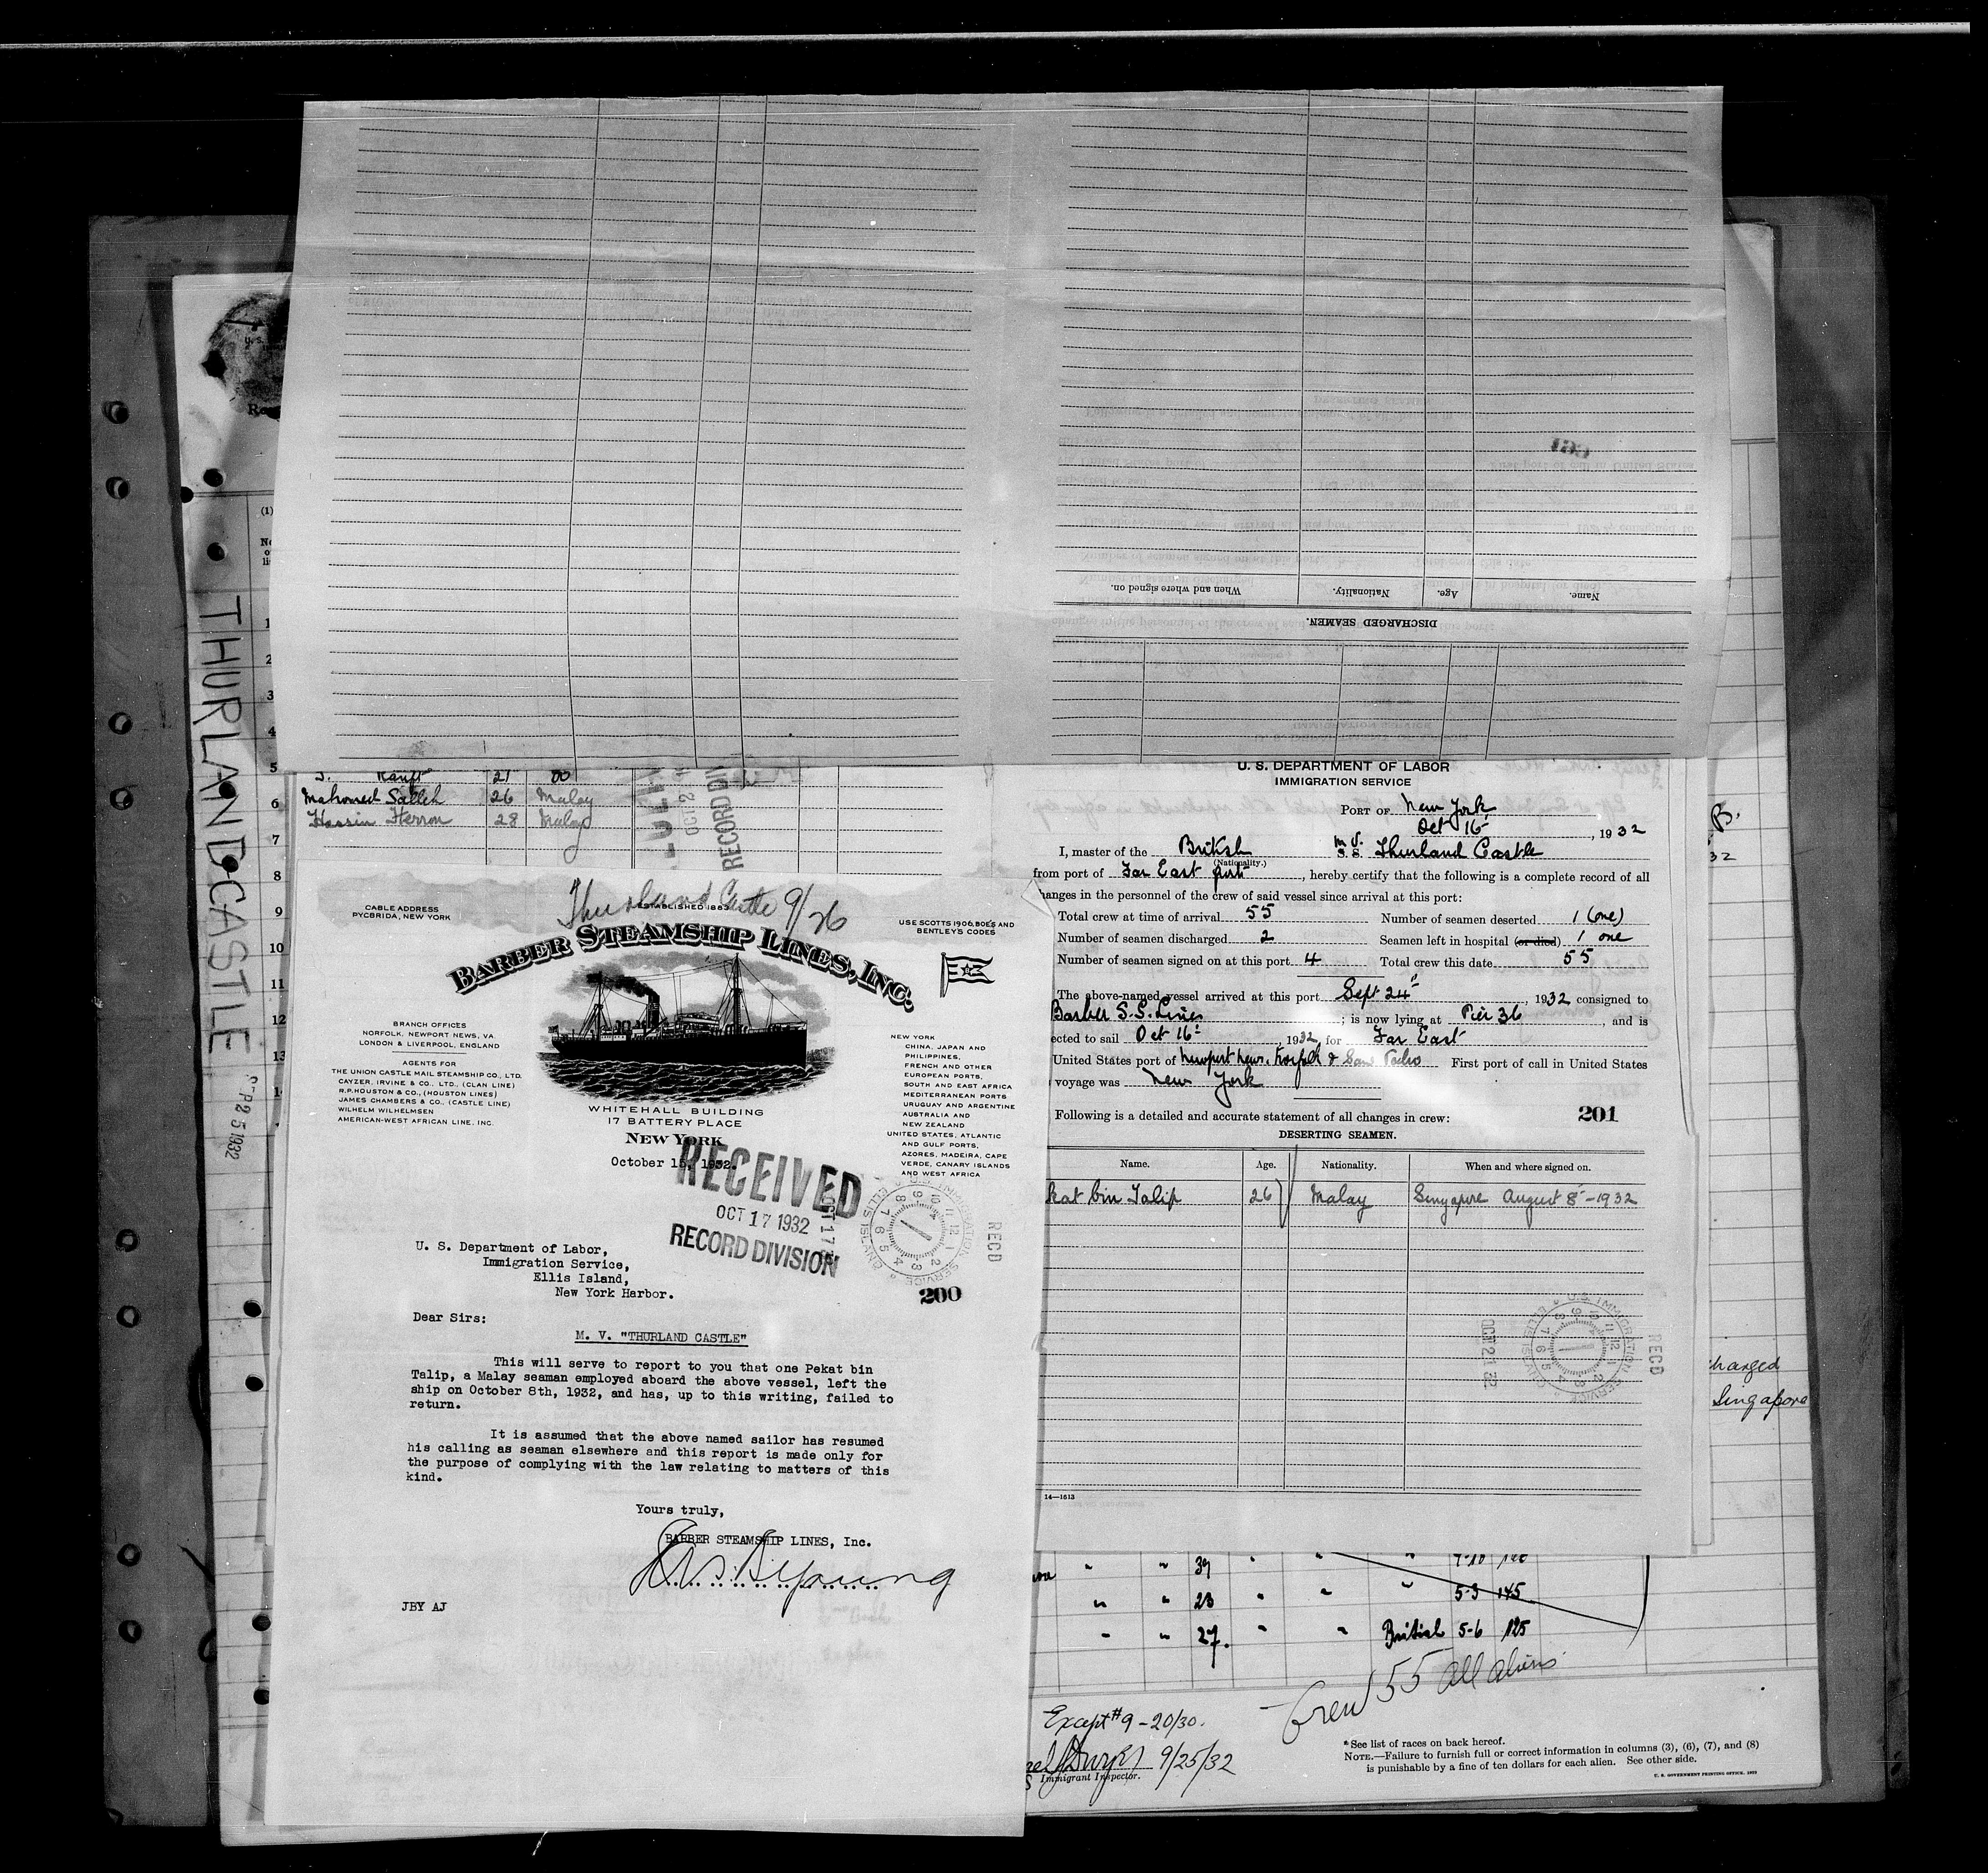 Name.
Age.
Nationality.
When and where signed on.
DISCHARGED SEAMEN.
THURLAND CASTLE
SEP 25 1932
(1)
1
2
3
4
5
6
7
8
9
10
11
12
13
21
Mahomed Salleh 26 Malay
Hassin Herron 28 Malay
Thurland Castle 9/26
CABLE ADDRESS
PYCBRIDA, NEW YORK
ESTABLISHED 1883
USE SCOTTS 1906, BOE'S AND
BENTLEY'S CODES
BARBER STEAMSHIP LINES, INC.
BRANCH OFFICES
NORFOLK, NEWPORT NEWS, VA.
LONDON & LIVERPOOL, ENGLAND
AGENTS FOR
THE UNION CASTLE MAIL STEAMSHIP CO., LTD.
CAYZER, IRVINE & CO., LTD., (CLAN LINE)
R.P. HOUSTON & CO., (HOUSTON LINES)
JAMES CHAMBERS & CO., (CASTLE LINE)
WILHELM WILHELMSEN
AMERICAN-WEST AFRICAN LINE, INC.
NEW YORK
CHINA, JAPAN AND
PHILIPPINES,
FRENCH AND OTHER
EUROPEAN PORTS,
SOUTH AND EAST AFRICA
MEDITERRANEAN PORTS
URUGUAY AND ARGENTINE
AUSTRALIA AND
NEW ZEALAND
UNITED STATES, ATLANTIC
AND GULF PORTS,
AZORES, MADEIRA, CAPE
VERDE, CANARY ISLANDS
AND WEST AFRICA
WHITEHALL BUILDING
17 BATTERY PLACE
NEW YORK
October 15, 1932.
RECEIVED
OCT 17 1932
RECORD DIVISION
RECD
200
U. S. Department of Labor,
Immigration Service,
Ellis Island,
New York Harbor.
Dear Sirs:
M. V. "THURLAND CASTLE"
This will serve to report to you that one Pekat bin
Talip, a Malay seaman employed aboard the above vessel, left the
ship on October 8th, 1932, and has, up to this writing, failed to
return.
It is assumed that the above named sailor has resumed
his calling as seaman elsewhere and this report is made only for
the purpose of complying with the law relating to matters of this
kind.
Yours truly,
BARBER STEAMSHIP LINES, Inc.
JBY AJ
U. S. DEPARTMENT OF LABOR
IMMIGRATION SERVICE
PORT OF New York
Oct 16, 1932
I, master of the British M.S. S. S. Thurland Castle
(Nationality.)
from port of Far East port, hereby certify that the following is a complete record of all
hanges in the personnel of the crew of said vessel since arrival at this port:
Total crew at time of arrival 55 Number of seamen deserted 1 (one)
Number of seamen discharged 2 Seamen left in hospital (or died) 1 one
Number of seamen signed on at this port 4 Total crew this date 55
The above-named vessel arrived at this port Sept 24, 1932 consigned to
Barber S.S. Lines; is now lying at Pier 36, and is
ected to sail Oct 16, 1932, for Far East
United States port of Newport News, Norfolk & San Pedro First port of call in United States
voyage was New York
Following is a detailed and accurate statement of all changes in crew: 201
DESERTING SEAMEN.
Name. Age. Nationality. When and where signed on.
kat bin Talip 26 Malay Singapore August 8-1932
OCT 21 32
RECD
14—1613
harged
Singapore
39
23 5-3 145
27. British 5-6 125
Crew 55 all aliens
Except #9-20/30.
9/25/32
Immigrant Inspector.
*See list of races on back hereof.
NOTE.—Failure to furnish full or correct information in columns (3), (6), (7), and (8)
is punishable by a fine of ten dollars for each alien. See other side.